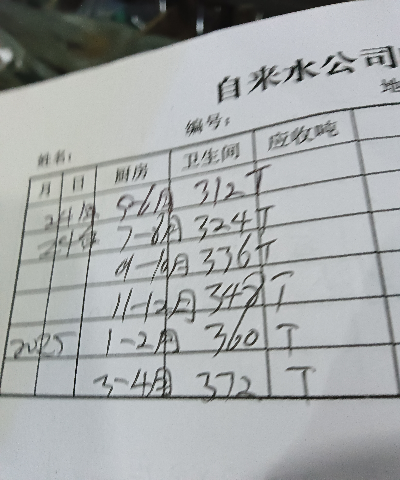 自来水公司
编号:
姓名:
月 日 厨房 卫生间 应收吨
24年 5-6月 312T
24年 7-8月 324T
9-10月 336T
11-12月 348T
2025 1-2月 360 T
3-4月 372 T